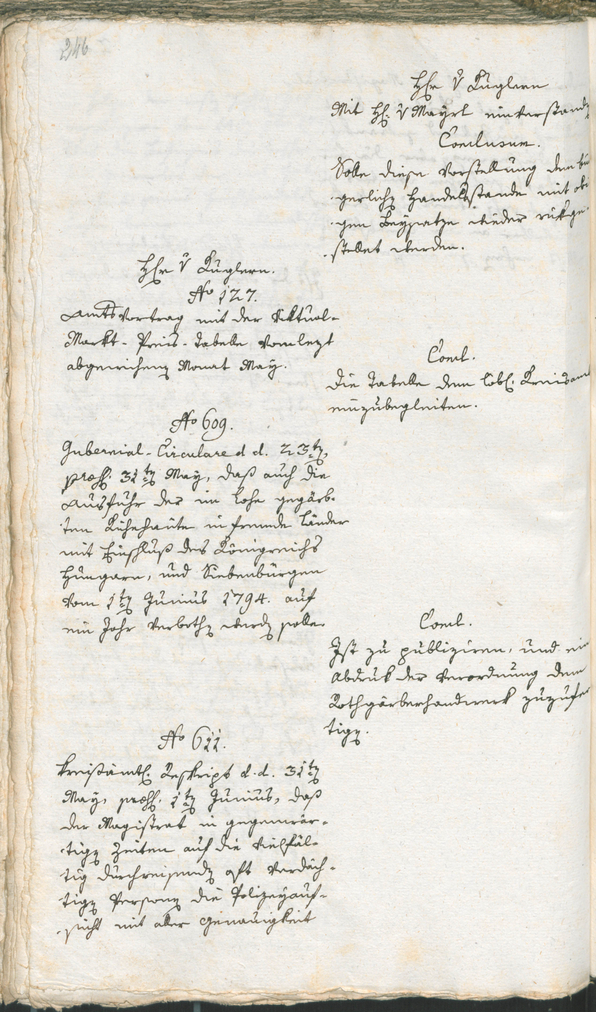 246
Hr. v. Kuglern
Mit H. v. Mayrl einverstand
Conclusum.
Solle diese Vorstellung dem bür
gerlichen Handelsstande mit obi
gen Beysatze wieder rükge-
stellet werden.
Hr. v. Kuglern.
No 127.
Amtsvortrag mit der Viktual-
Markt-Preis-Tabelle vom lezt
abgewichenen Monat May.
Concl.
Die Tabelle dem löbl. Kreisam
einzubegleiten.
No 609.
Gubernial-Circulare d. d. 23ten
31ten May, daß auch die
Ausfuhr der im Lohe gegärb-
ten Kühehäute in fremde Länder
mit Einschluß des Königreichs
Hungarn, und Siebenbürgen
vom 1ten Junius 1794. auf
ein Jahr verbothen werden solle.
Concl.
Ist zu publiziren, und ein
Abdruk der Verordnung dem
Rothgärberhandwerk zuzufer
tigen.
No 611.
Kreisämtl. Reskript d. d. 31ten
May, 1ten Junius, daß
der Magistrat in gegenwär-
tigen Zeiten auf die vielfäl-
tig durchreisenden oft verdäch-
tigen Personen die Polizeyauf-
sicht mit aller Genauigkeit